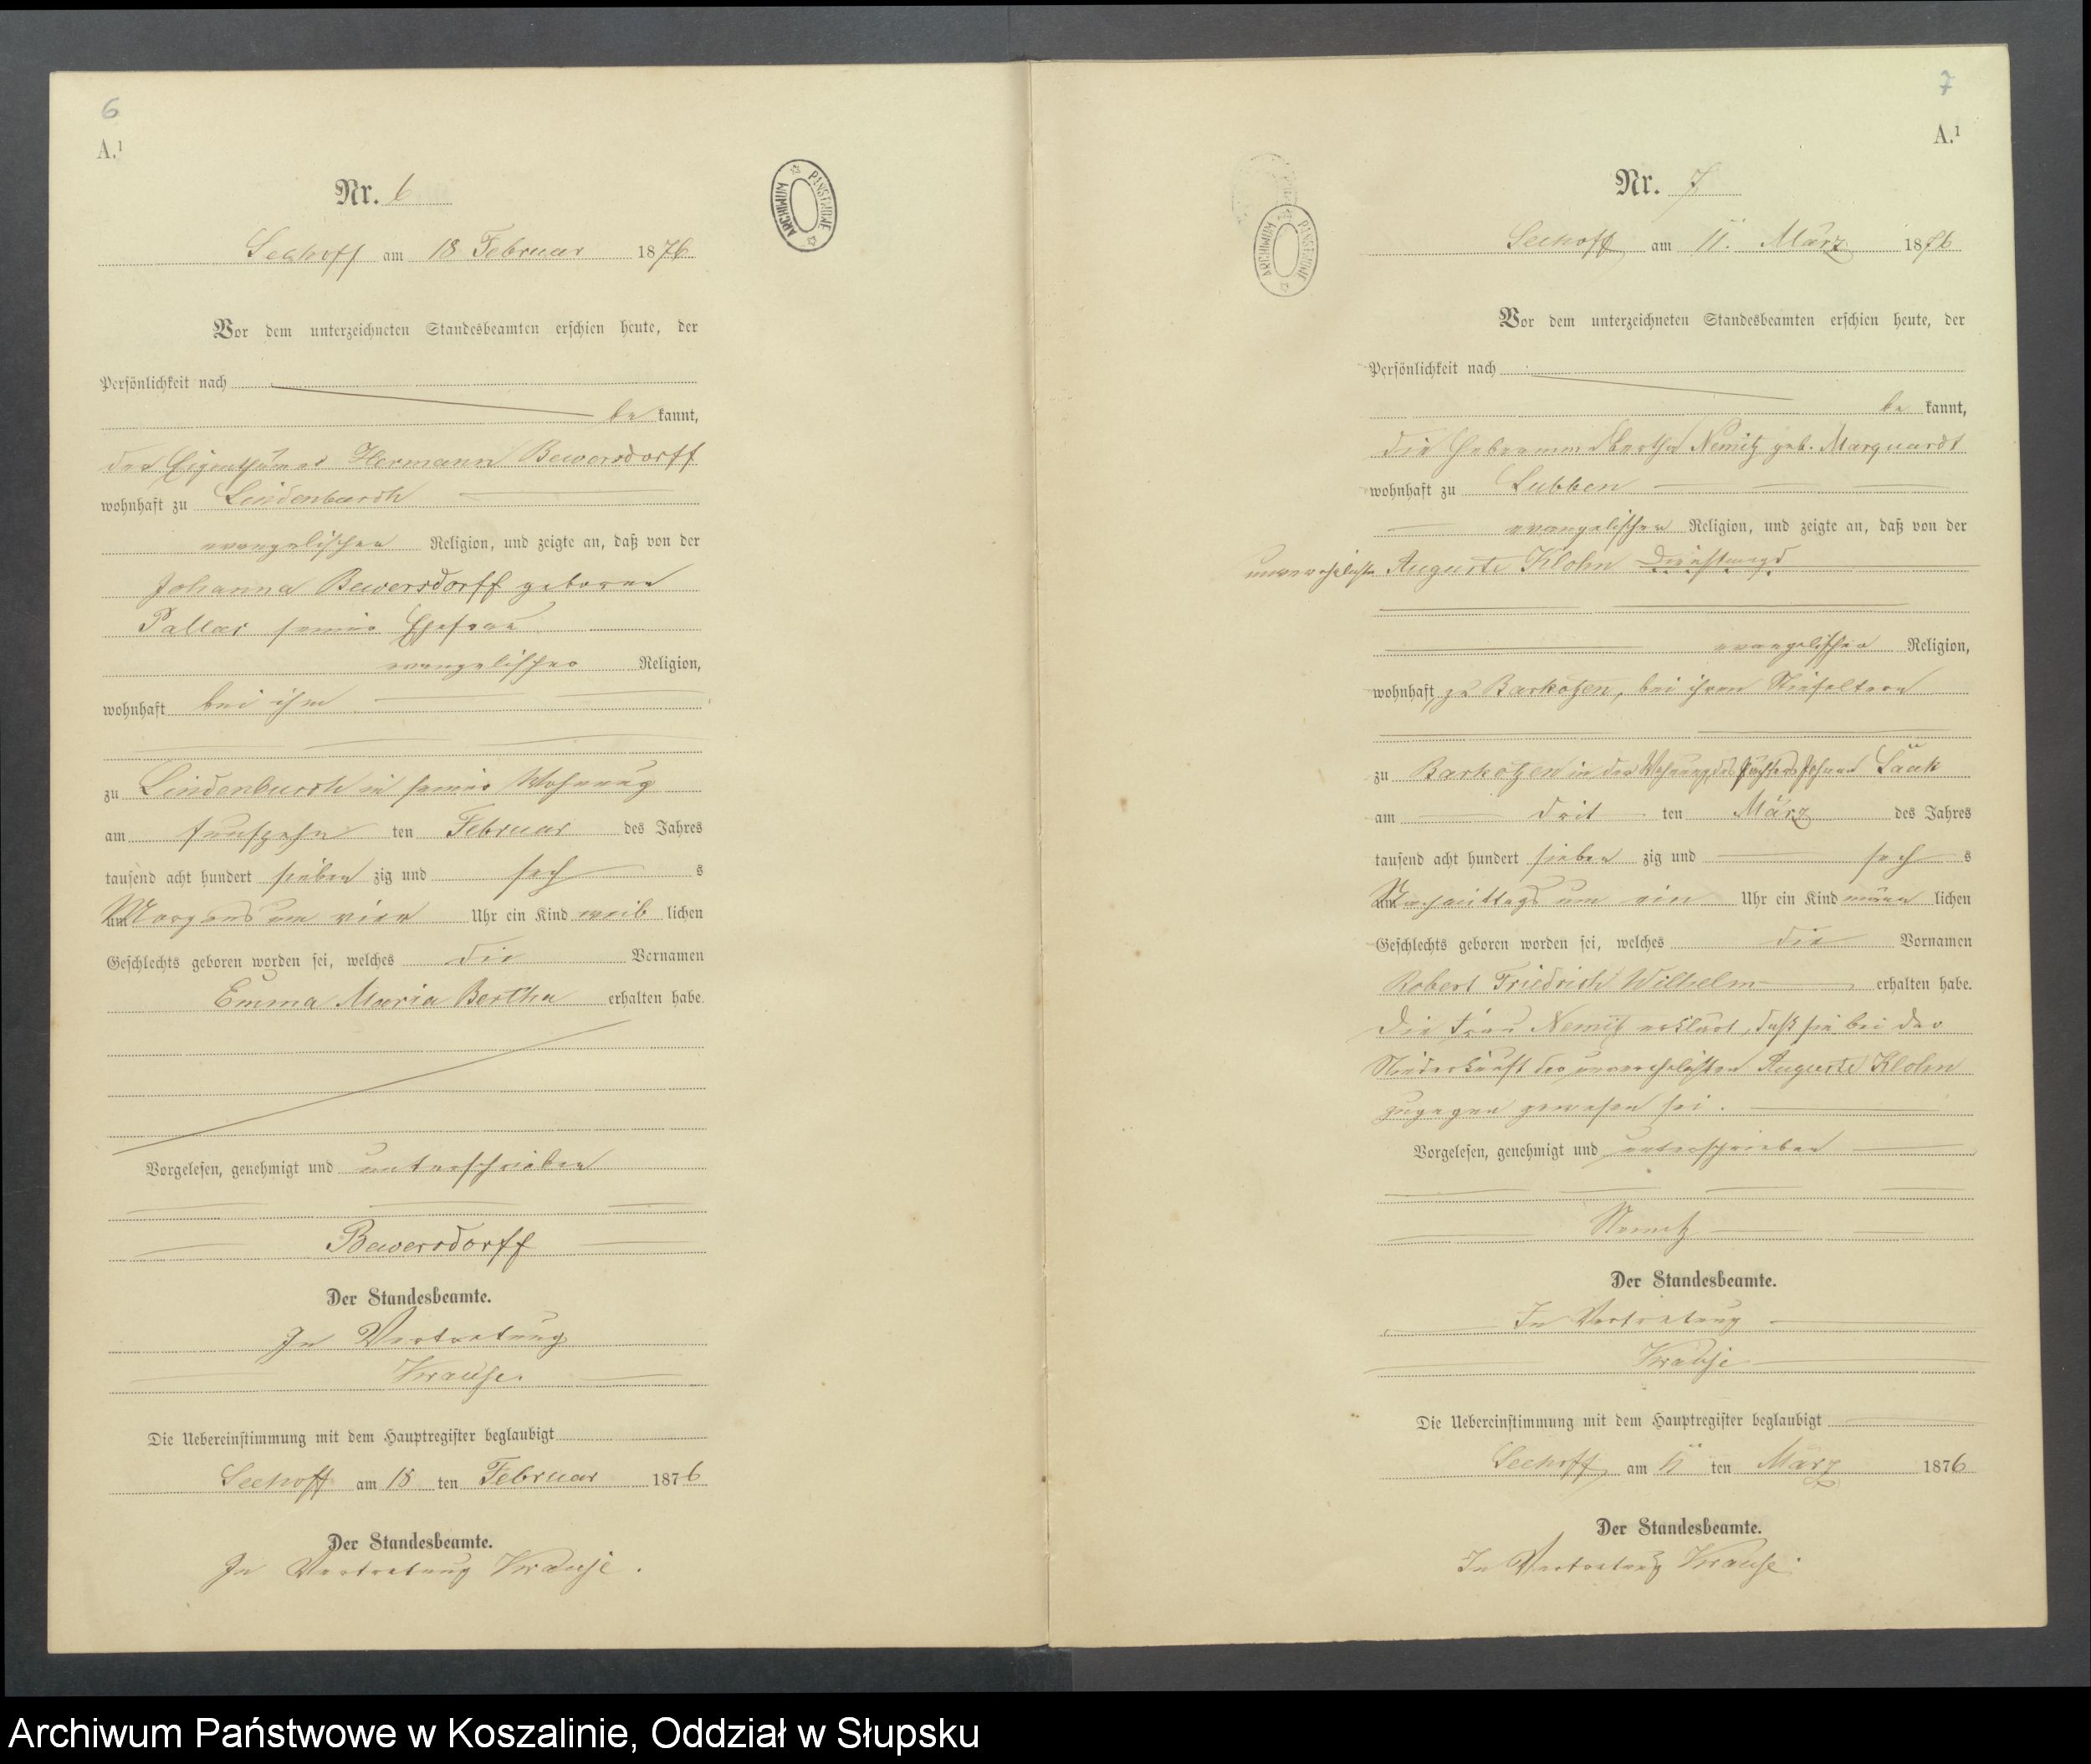 6
A.¹
Nr. 6
ARCHIWUM PAŃSTWOWE
Seehoff am 18 Februar 1876
Vor dem unterzeichneten Standesbeamten erschien heute, der
Persönlichkeit nach
be kannt,
der Eigenthümer Hermann Bewersdorff
wohnhaft zu Lindenbusch
evangelischer Religion, und zeigte an, daß von der
Johanna Bewersdorff geborne
Pallas seiner Ehefrau
evangelischer Religion,
wohnhaft bei ihm
zu Lindenbusch in seiner Wohnung
am funfzehn ten Februar des Jahres
tausend acht hundert sieben zig und sech s
Morgens um vier Uhr ein Kind weib lichen
Geschlechts geboren worden sei, welches die Vornamen
Emma Maria Bertha erhalten habe.
Vorgelesen, genehmigt und unterschrieben
Bewersdorff
Der Standesbeamte.
In Vertretung
Krause.
Die Uebereinstimmung mit dem Hauptregister beglaubigt
Seehoff am 18 ten Februar 1876
Der Standesbeamte.
In Vertretung Krause.
7
A.¹
Nr. 7
ARCHIWUM PAŃSTWOWE
Seehoff am 11. März 1876
Vor dem unterzeichneten Standesbeamten erschien heute, der
Persönlichkeit nach
be kannt,
die Hebeamme Bertha Nemitz geb. Marquardt
wohnhaft zu Lubben
evangelischer Religion, und zeigte an, daß von der
unverehelichte Auguste Klohn Dienstmagd
evangelischer Religion,
wohnhaft zu Barkotzen, bei ihren Stiefeltern
zu Barkotzen in der Wohnung des Johann Läak
am drit ten März des Jahres
tausend acht hundert sieben zig und sech s
Nachmittags um ein Uhr ein Kind männ lichen
Geschlechts geboren worden sei, welches die Vornamen
Robert Friedrich Wilhelm erhalten habe.
Die Frau Nemitz erklärt, daß sie bei der
Niederkunft der unverehelichten Auguste Klohn
zugegen gewesen sei.
Vorgelesen, genehmigt und unterschrieben
Nemitz
Der Standesbeamte.
In Vertretung
Krause
Die Uebereinstimmung mit dem Hauptregister beglaubigt
Seehoff am 11 ten März 1876
Der Standesbeamte.
In Vertretung Krause.
Archiwum Państwowe w Koszalinie, Oddział w Słupsku